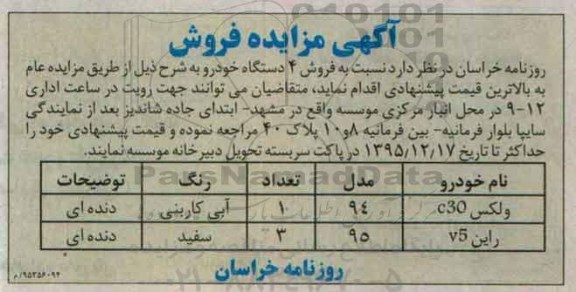 آگهی مزایده فروش
روزنامه خراسان در نظر دارد نسبت به فروش ۴ دستگاه خودرو به شرح ذیل از طریق مزایده عام
به بالاترین قیمت پیشنهادی اقدام نماید، متقاضیان می توانند جهت رویت در ساعت اداری
۱۲-۹ در محل انبار مرکزی موسسه واقع در مشهد- ابتدای جاده شاندیز بعد از نمایندگی
سایپا بلوار فرمانیه- بین فرمانیه ۸و۱۰ پلاک ۴۰ مراجعه نموده و قیمت پیشنهادی خود را
حداکثر تا تاریخ ۱۳۹۵/۱۲/۱۷ در پاکت سربسته تحویل دبیرخانه موسسه نمایند.
نام خودرو مدل تعداد رنگ توضیحات
ولکس c30 ۹۴ ۱ آبی کاربنی دنده ای
راین v5 ۹۵ ۳ سفید دنده ای
روزنامه خراسان
۹۵۳۵۶۰۹۴/م
ParsNamadData